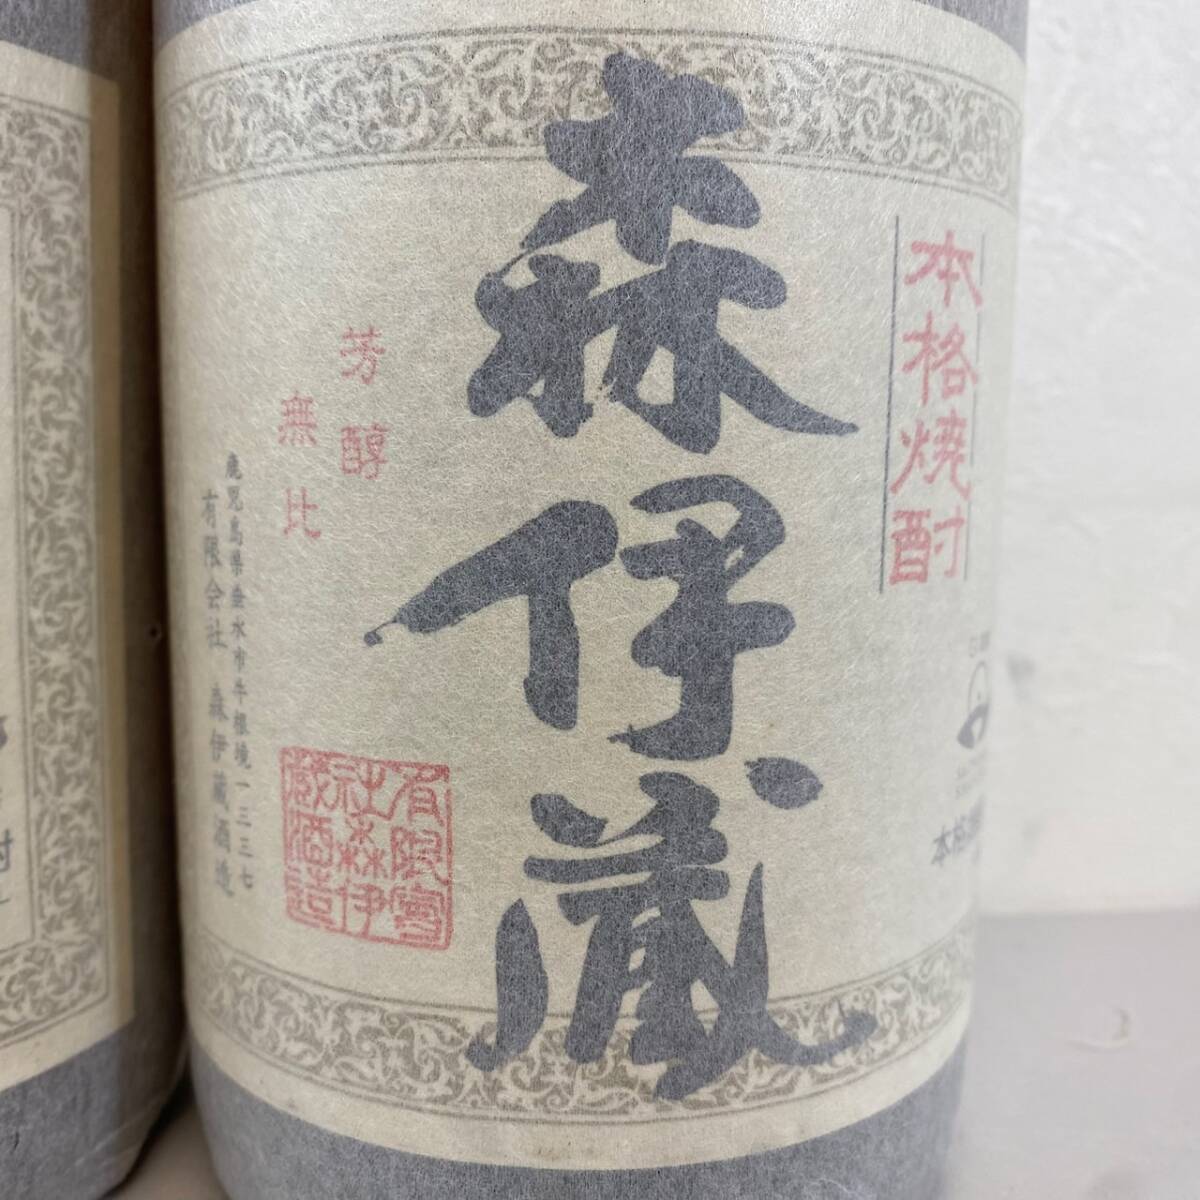 本格焼酎
森伊蔵
芳醇
無比
鹿児島県垂水市牛根境一三三七
有限会社 森伊蔵酒造
有限会
社森伊
蔵酒造
本格
酎